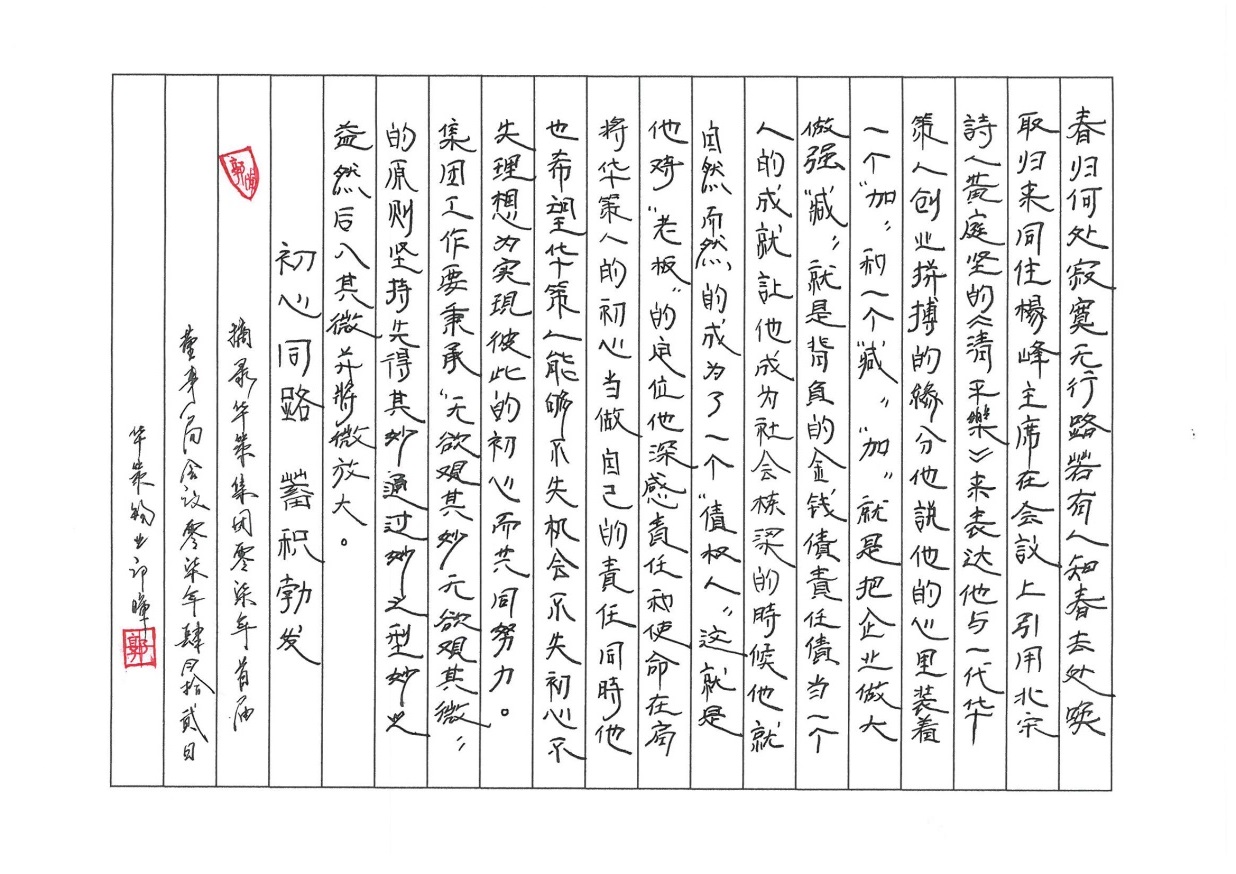 春归何处寂寞无行路若有人知春去处唤
取归来同住楊峰主席在会议上引用北宋
詩人黄庭坚的《清平樂》来表达他与一代华
策人创业拼搏的缘分他説他的心里装着
一个“加”和一个“减”“加”就是把企业做大
做强“减”就是背負的金钱債責任債当一个
人的成就讓他成为社会栋梁的時候他就
自然而然的成为了一个“債权人”这就是
他对“老板”的定位他深感責任和使命在肩
将华策人的初心当做自己的責任同時他
也希望华策人能够不失机会不失初心不
失理想为实現彼此的初心而共同努力。
集团工作要秉承“无欲观其妙无欲观其微”
的原则坚持先得其妙通过妙之型妙之
益然后入其微并將微放大。
初心同路 蓄积勃发
摘录华策集团零柒年首届
董事局会议零柒年肆月拾贰日
华策物业郭暐
郭